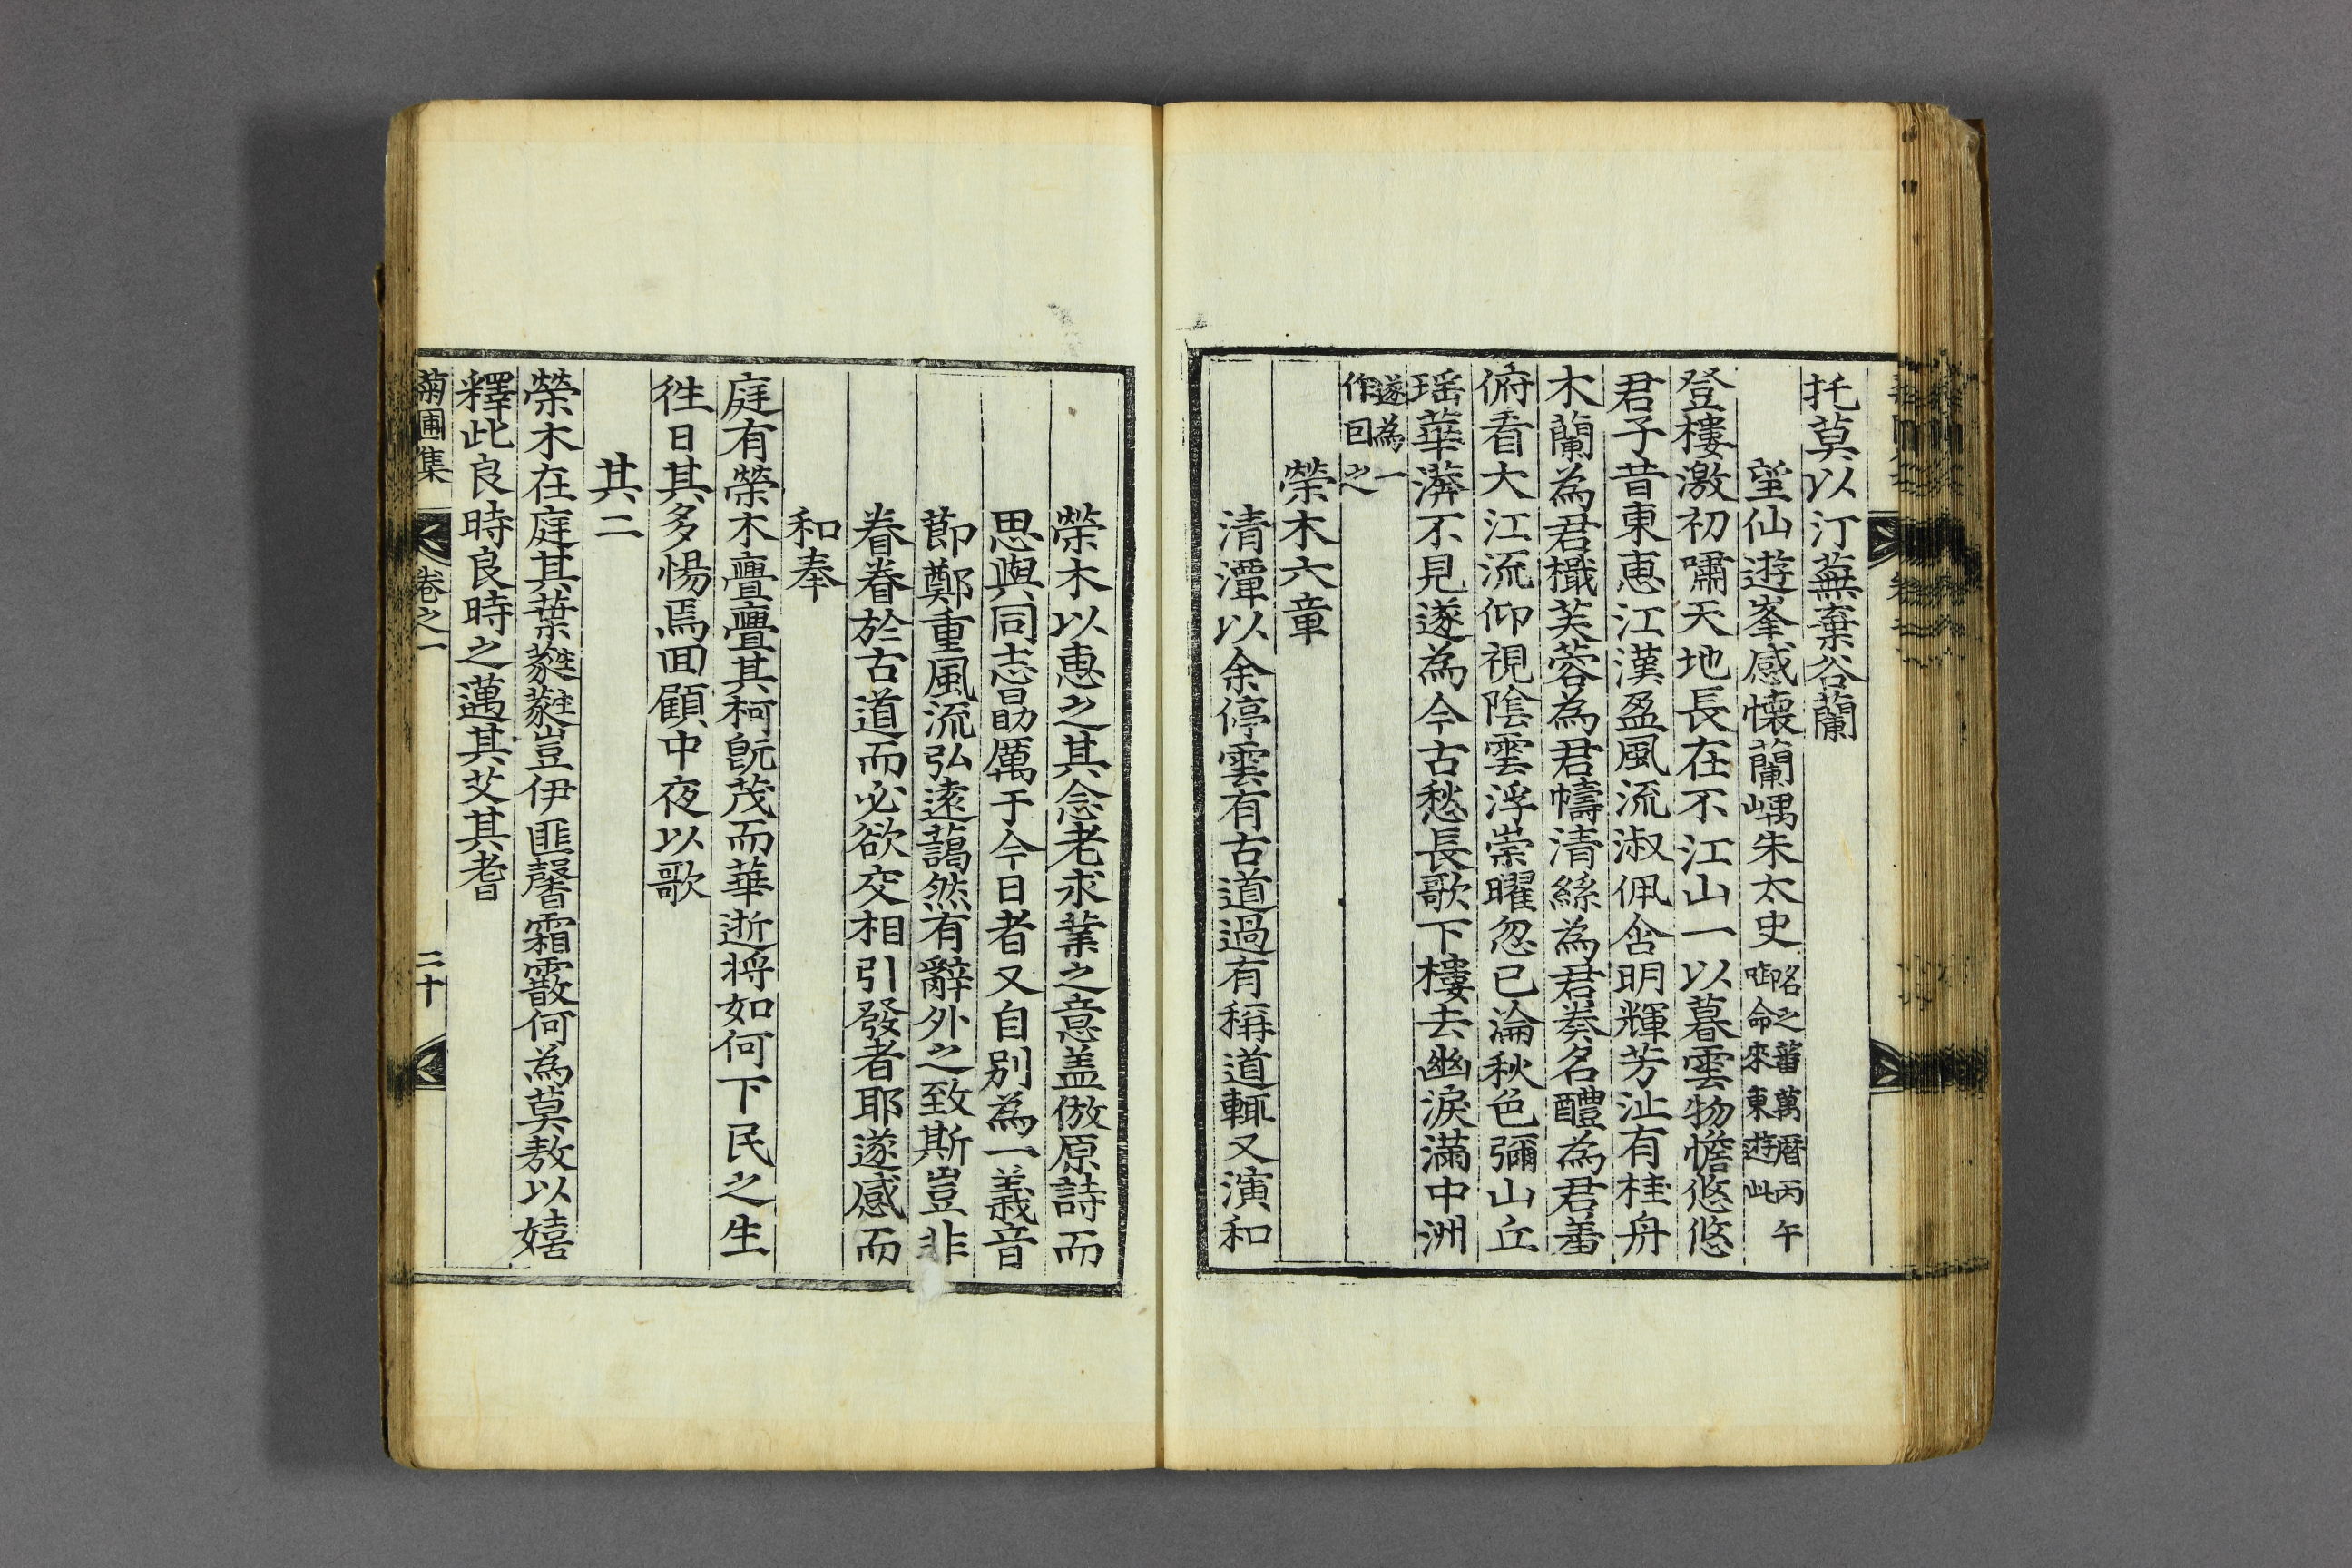 托莫以汀蕪棄谷蘭
望仙遊峯感懷蘭嵎朱太史名之蕃萬曆丙午
啣命來東遊此
登樓激初嘯天地長在不江山一以暮雲物憺悠悠
君子昔東惠江漢盈風流淑佩含明輝芳沚有桂舟
木蘭為君檝芙蓉為君幬清絲為君奏名醴為君羞
俯看大江流仰視陰雲浮崇曜忽已淪秋色彌山丘
瑶華漭不見遂為今古愁長歌下樓去幽淚滿中洲
遂為一
作回之
榮木六章
清潭以余停雲有古道過有稱道輒又演和
榮木以惠之其念老求業之意盖倣原詩而
思與同志勗厲于今日者又自別為一義音
節鄭重風流弘遠藹然有辭外之致斯豈非
眷眷於古道而必欲交相引發者耶遂感而
和奉
庭有榮木亹亹其柯旣茂而華逝将如何下民之生
徃日其多惕焉回顧中夜以歌
其二
榮木在庭其葉蕤蕤豈伊匪馨霜霰何為莫敖以嬉
釋此良時良時之邁其艾其耆
菊圃集
卷之一
二十